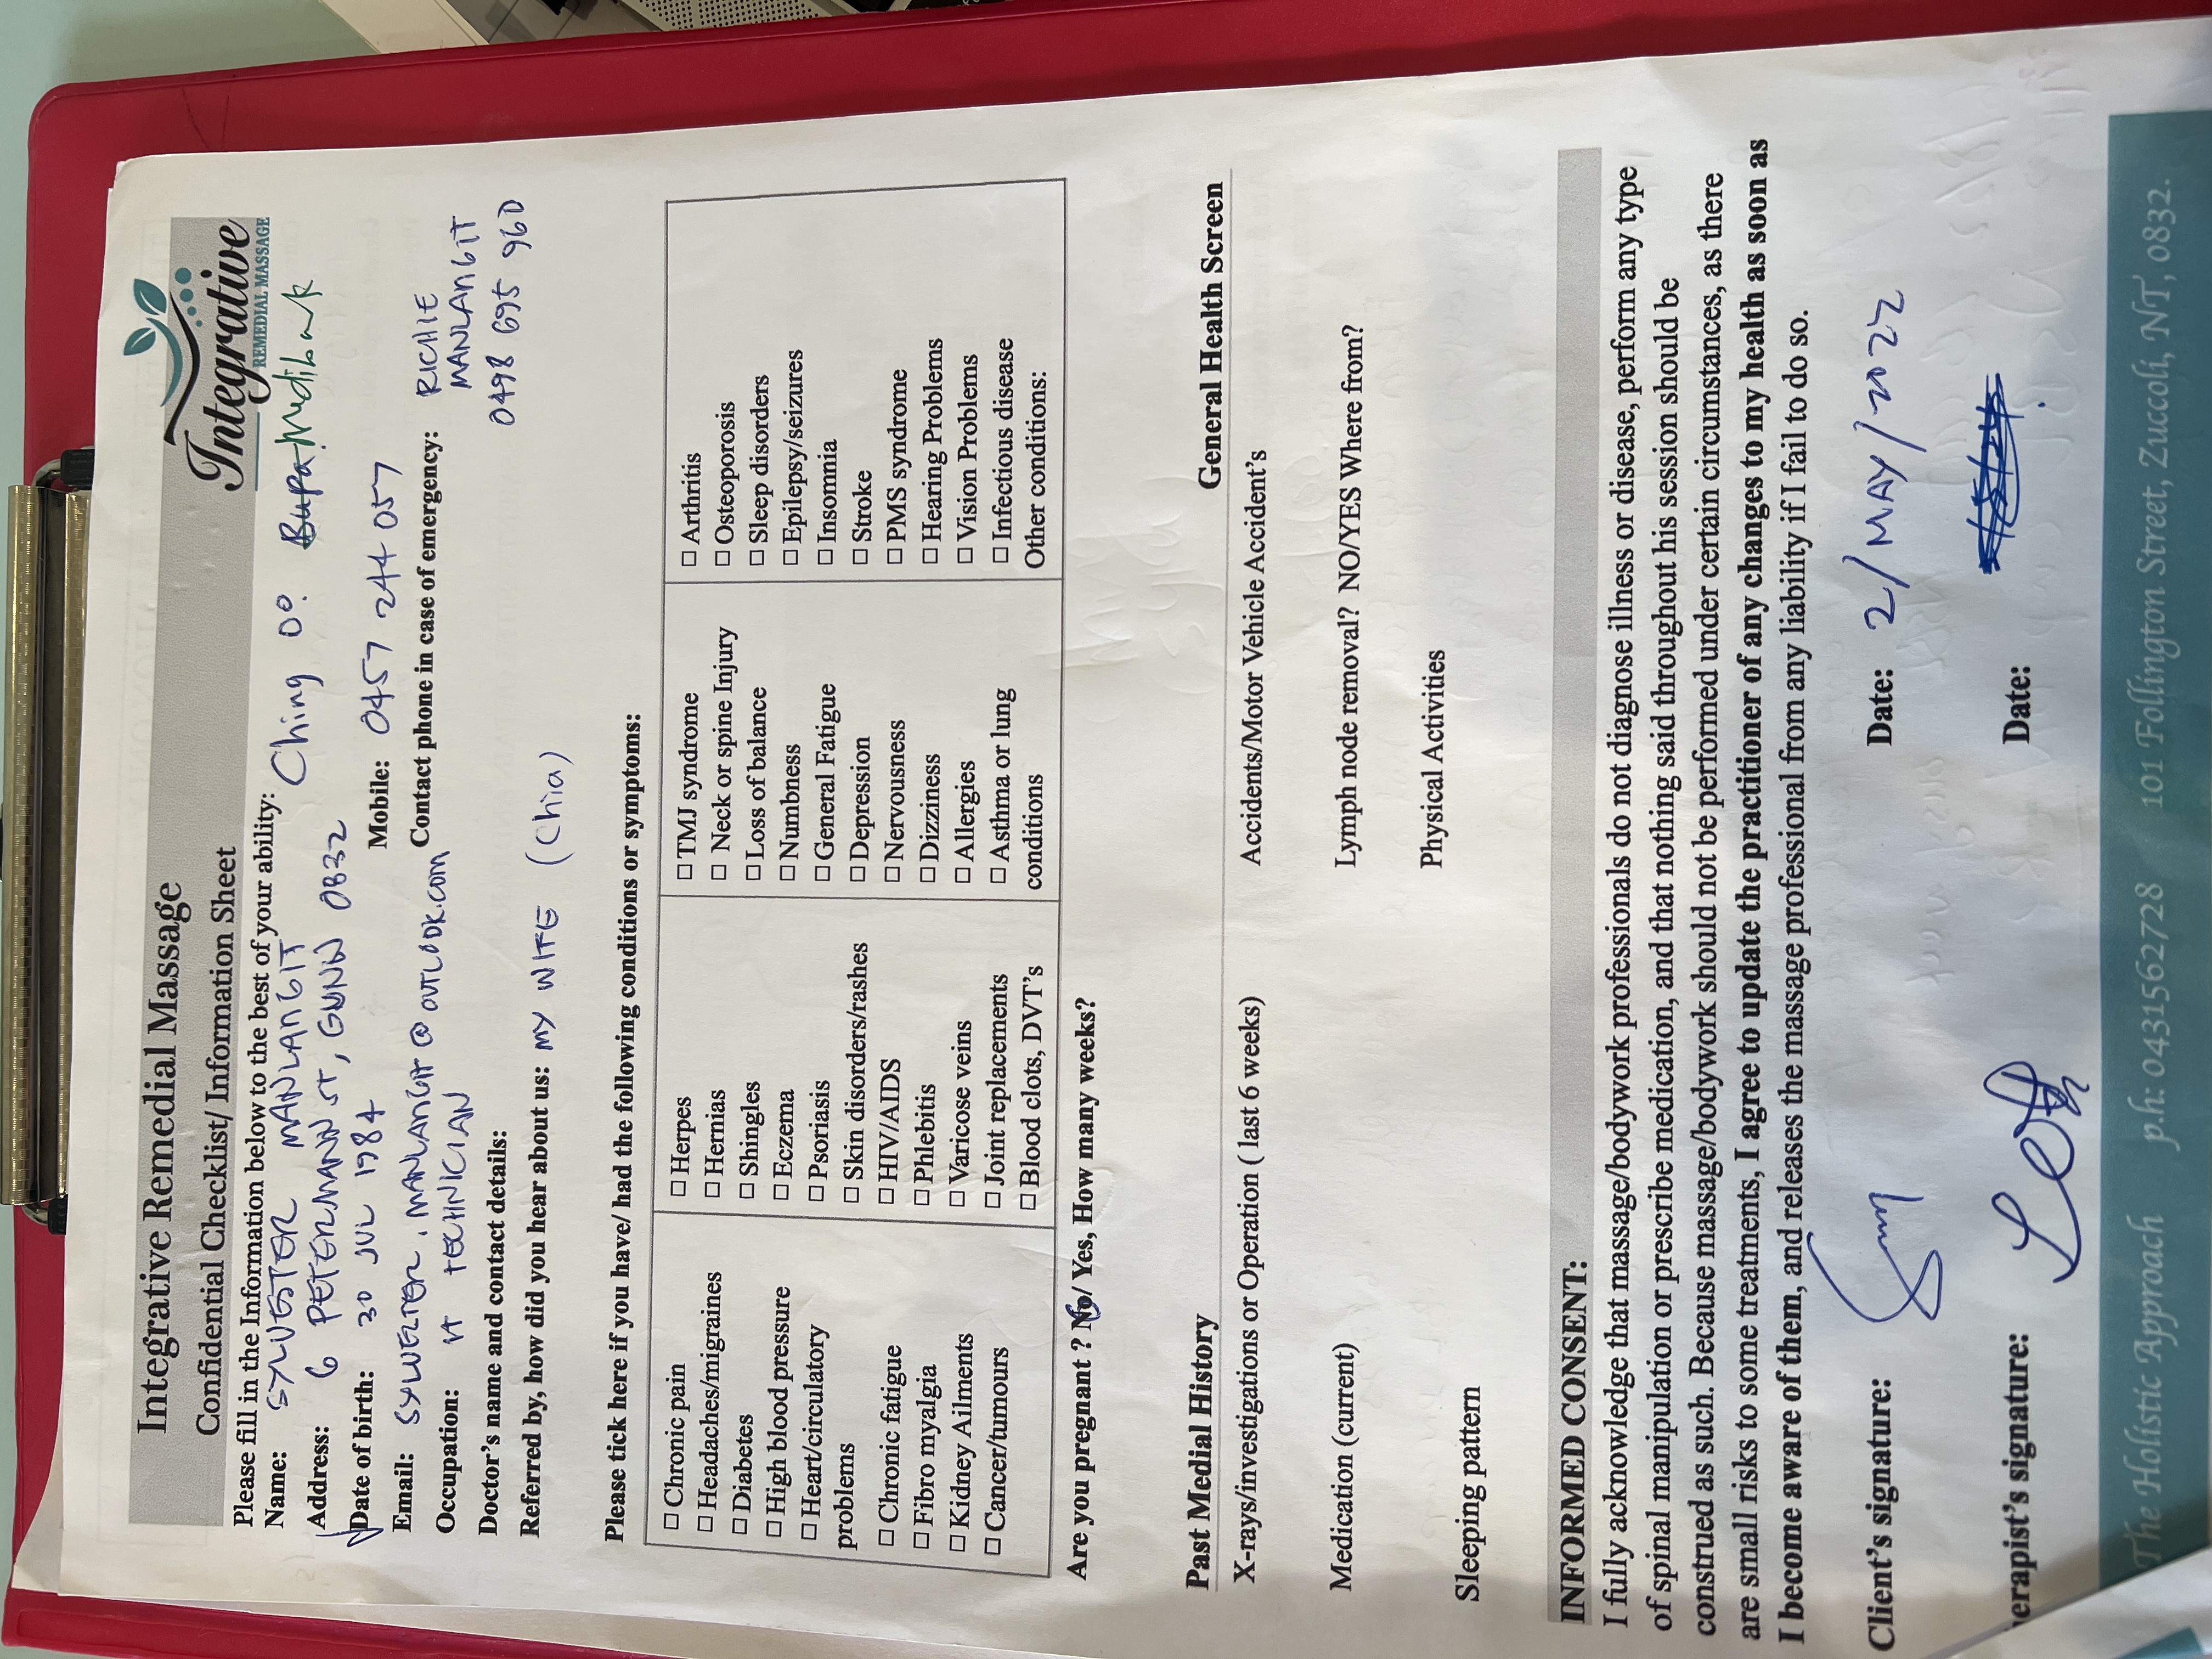 Integrative Remedial Massage
Confidential Checklist/ Information Sheet
Integrative
REMEDIAL MASSAGE
Please fill in the Information below to the best of your ability:
Name: SYLVESTER MANLANGIT Ching 00. Bupa. Medibank
Address: 6 PETERMANN ST, GUNN 0832
Date of birth: 30 JUL 1984 Mobile: 0457 244 057
Email: SYLVESTER.MANLANGIT@OUTLOOK.com Contact phone in case of emergency: RICHIE
MANLANGIT
0498 695 960
Occupation: IT TECHNICIAN
Doctor's name and contact details:
Referred by, how did you hear about us: MY WIFE (Chia)
Please tick here if you have/ had the following conditions or symptoms:
☐ Chronic pain
☐ Headaches/migraines
☐ Diabetes
☐ High blood pressure
☐ Heart/circulatory
problems
☐ Chronic fatigue
☐ Fibro myalgia
☐ Kidney Ailments
☐ Cancer/tumours
☐ Herpes
☐ Hernias
☐ Shingles
☐ Eczema
☐ Psoriasis
☐ Skin disorders/rashes
☐ HIV/AIDS
☐ Phlebitis
☐ Varicose veins
☐ Joint replacements
☐ Blood clots, DVT's
☐ TMJ syndrome
☐ Neck or spine Injury
☐ Loss of balance
☐ Numbness
☐ General Fatigue
☐ Depression
☐ Nervousness
☐ Dizziness
☐ Allergies
☐ Asthma or lung
conditions
☐ Arthritis
☐ Osteoporosis
☐ Sleep disorders
☐ Epilepsy/seizures
☐ Insomnia
☐ Stroke
☐ PMS syndrome
☐ Hearing Problems
☐ Vision Problems
☐ Infectious disease
Other conditions:
Are you pregnant ? No/ Yes, How many weeks?
Past Medial History General Health Screen
X-rays/investigations or Operation ( last 6 weeks) Accidents/Motor Vehicle Accident's
Medication (current) Lymph node removal? NO/YES Where from?
Sleeping pattern Physical Activities
INFORMED CONSENT:
I fully acknowledge that massage/bodywork professionals do not diagnose illness or disease, perform any type
of spinal manipulation or prescribe medication, and that nothing said throughout his session should be
construed as such. Because massage/bodywork should not be performed under certain circumstances, as there
are small risks to some treatments, I agree to update the practitioner of any changes to my health as soon as
I become aware of them, and releases the massage professional from any liability if I fail to do so.
Client's signature: Date: 2/MAY/2022
erapist's signature: Date:
The Holistic Approach p.h: 0431562728 101 Follington Street, Zuccoli, NT, 0832.